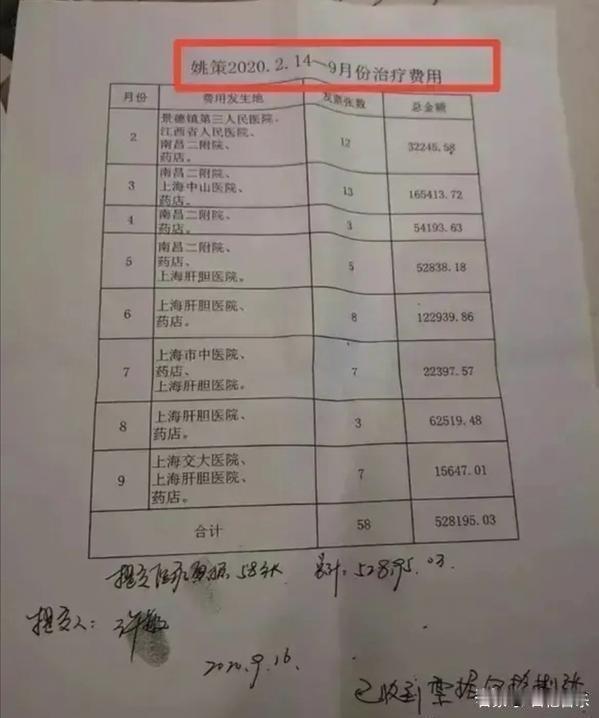 姚策2020.2.14～9月份治疗费用
月份 费用发生地 发票张数 总金额
2 景德镇第三人民医院、 12 32245.58
江西省人民医院、
南昌二附院、
药店。
3 南昌二附院、 13 165413.72
上海中山医院、
药店。
4 南昌二附院、 3 54193.63
药店。
5 南昌二附院、 5 52838.18
药店、
上海肝胆医院。
6 上海肝胆医院、 8 122939.86
药店。
7 上海市中医院、 7 22397.57
药店、
上海肝胆医院。
8 上海肝胆医院、 3 62519.48
药店。
9 上海交大医院、 7 15647.01
上海肝胆医院、
药店。
合计 58 528195.03
提交医疗票据58张 累计:528195.03
提交人：许敏
2020.9.16
已收到票据